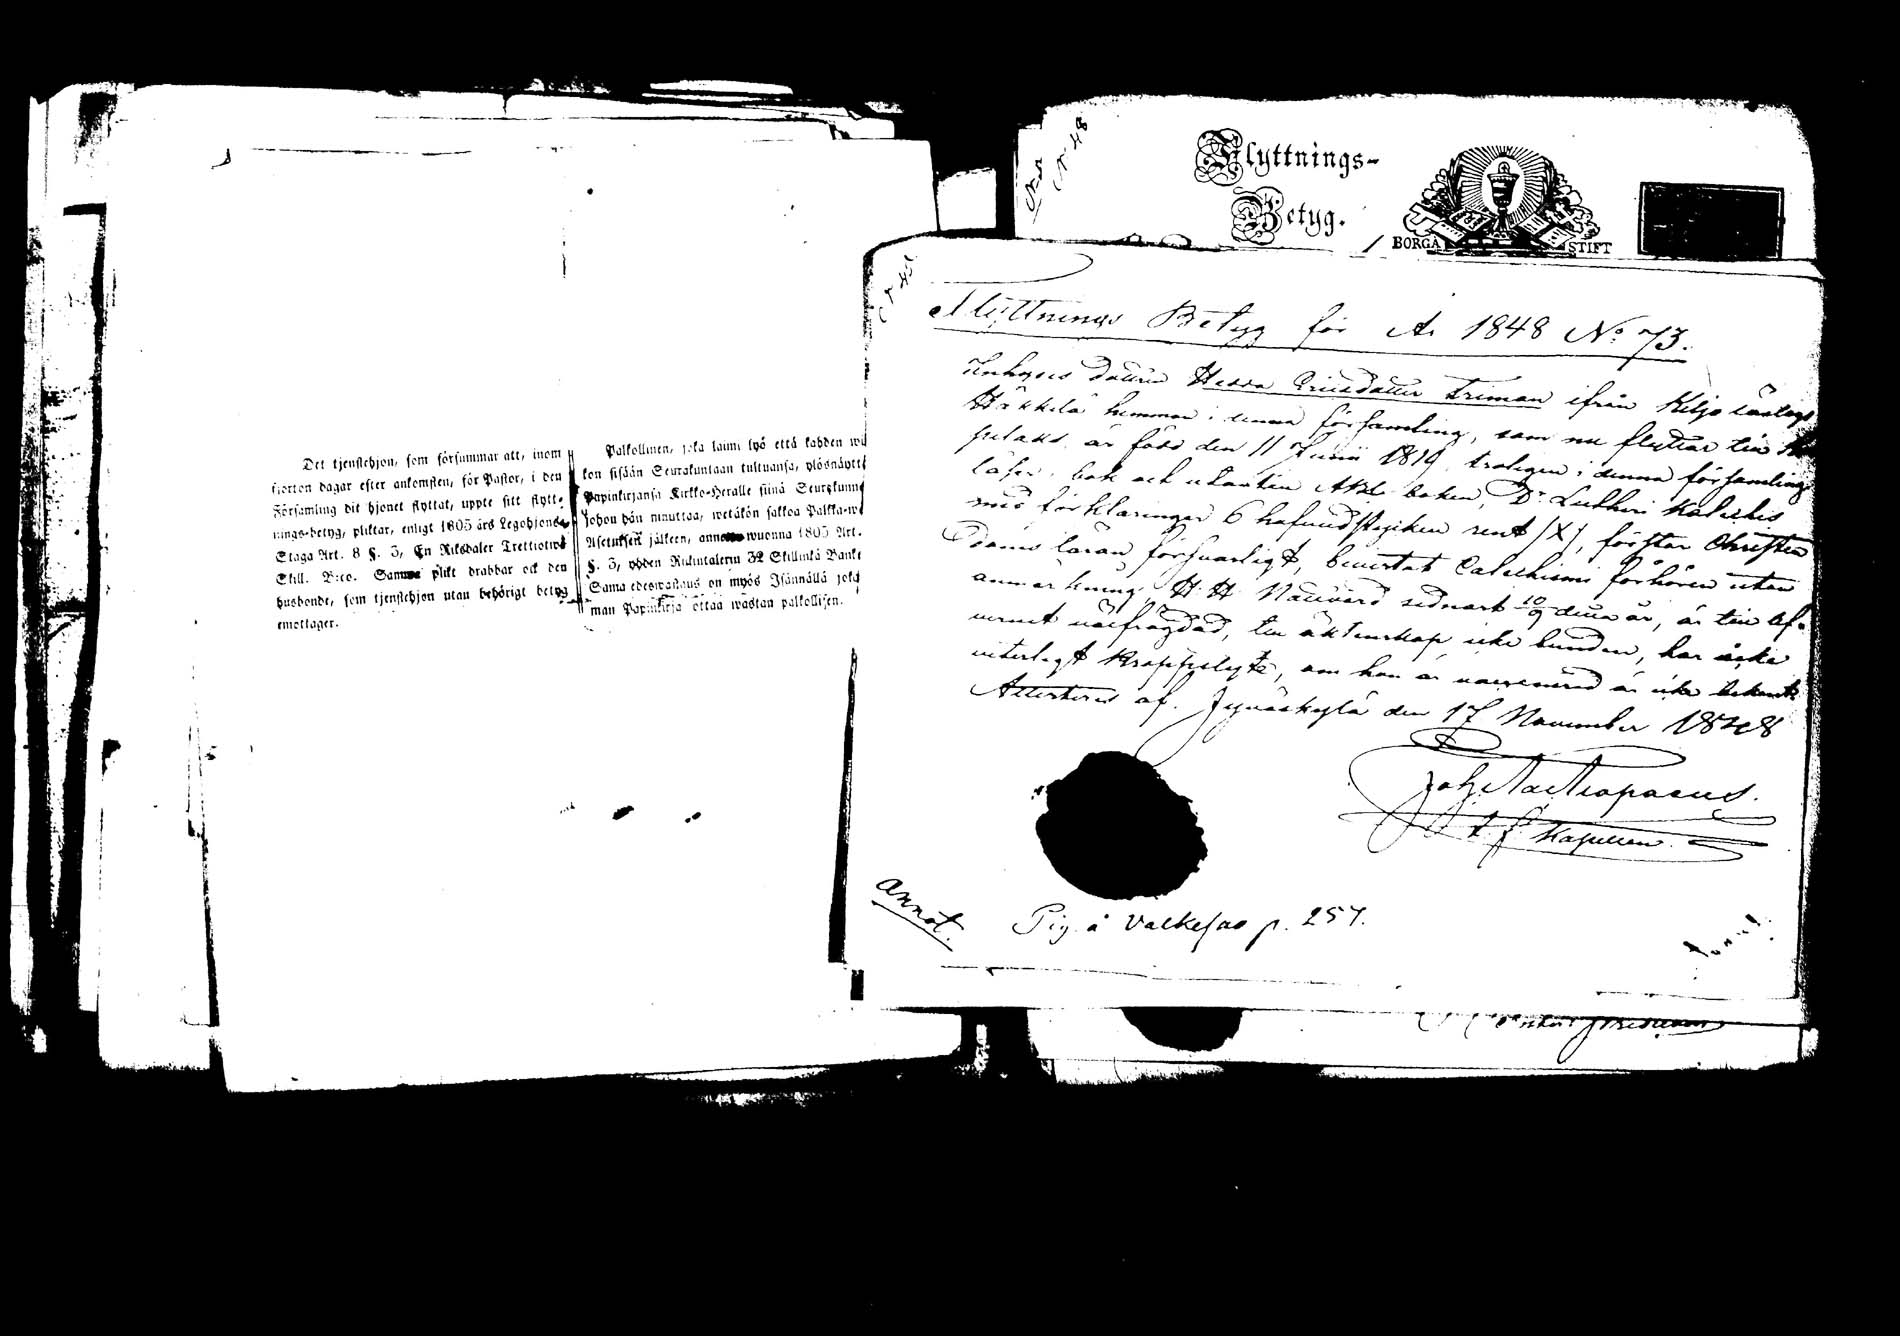 Det tjenstehjon, som försummar att, inom
fjorton dagar efter ankomsten, för Pastor, i den
Församling dit hjonet flyttat, uppte sitt flytt-
nings-betyg, pliktar, enligt 1805 års Legohjons-
Staga Art. 8 §. 3, En Riksdaler Trettiotwå
Skill. B:co. Samma plikt drabbar ock den
husbonde, som tjenstehjon utan behörigt betyg
emottager.
Palkollinen, joka laimi lyö että kahden wii
kon sisään Seurakuntaan tultuansa, ylösnäyttä
Papinkirjansa Kirkko-Heralle siinä Seurakunna
johon hän muuttaa, wetäkön sakkoa Palkka-w
Asetuksen jälkeen, annettu wuonna 1805 Art.
§. 3, yhden Riikintalerin 32 Skillinkä Banko
Sama edeswastaus on myös Isännällä joka
man Papinkirja ottaa wastan palkollisen.
N 48
Flyttnings-
Betyg.
BORGÅ STIFT
N 48
Flyttnings Betyg för År 1848 No 73.
Inhyses dottren Hedda Ericsdotter Friman ifrån Keljo
hemman i denna församling, som nu flyttar till
är född den 11 Junii 1819 troligen i denna församling
läser i bok och utantill ABC boken, Dr Lutheri Katechis
med förklaringar 6 hufvudstycken rent (X), förstår Christen
doms läran försvarligt, bevistat Catechismi förhören utan
anmärkning, H. H. Nattvard sednast 10/9 detta år, är till
välfrägdad, till äktenskap icke bunden, har icke
veterligt kroppslyte, om hon är vaccinerad är icke bekant.
Attesteras af. Jyväskylä den 17 November 1848
Kapellan.
annot.
Pig. å Valkesao p. 257.